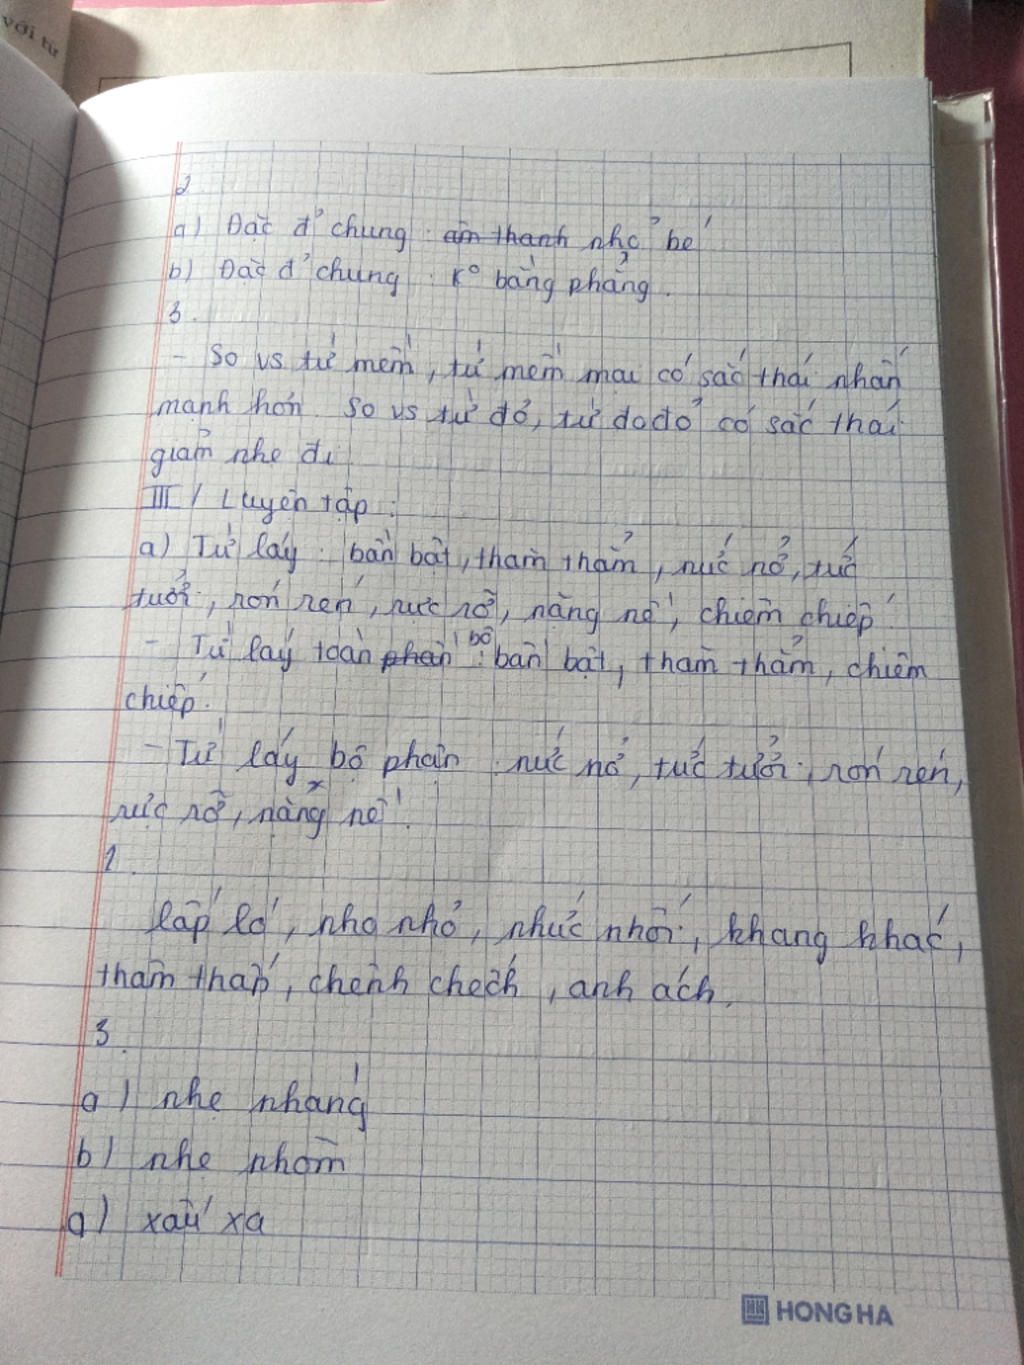 với từ
2
a) Đặc đ' chung : âm thanh nhỏ bé
b) Đặc đ' chung : k° bằng phẳng.
3.
- So vs từ mềm, từ mềm mại có sắc thái nhấn
mạnh hơn. So vs từ đỏ, từ đo đỏ có sắc thái
giảm nhẹ đi
III / Luyện tập :
a) Từ láy : bần bật, thăm thẳm, nức nở, tức
tưởi, rón rén, rực rỡ, nặng nề, chiêm chiếp.
- Từ láy toàn phần bộ : bần bật, thăm thẳm, chiêm
chiếp.
- Từ láy bộ phận : nức nở, tức tưởi, rón rén,
rực rỡ, nặng nề.
2.
lấp ló, nho nhỏ, nhức nhối, khang khác,
thâm thấp, chênh chếch, anh ách.
3.
a) nhẹ nhàng
b) nhẹ nhõm
a) xấu xa
HH HONG HA